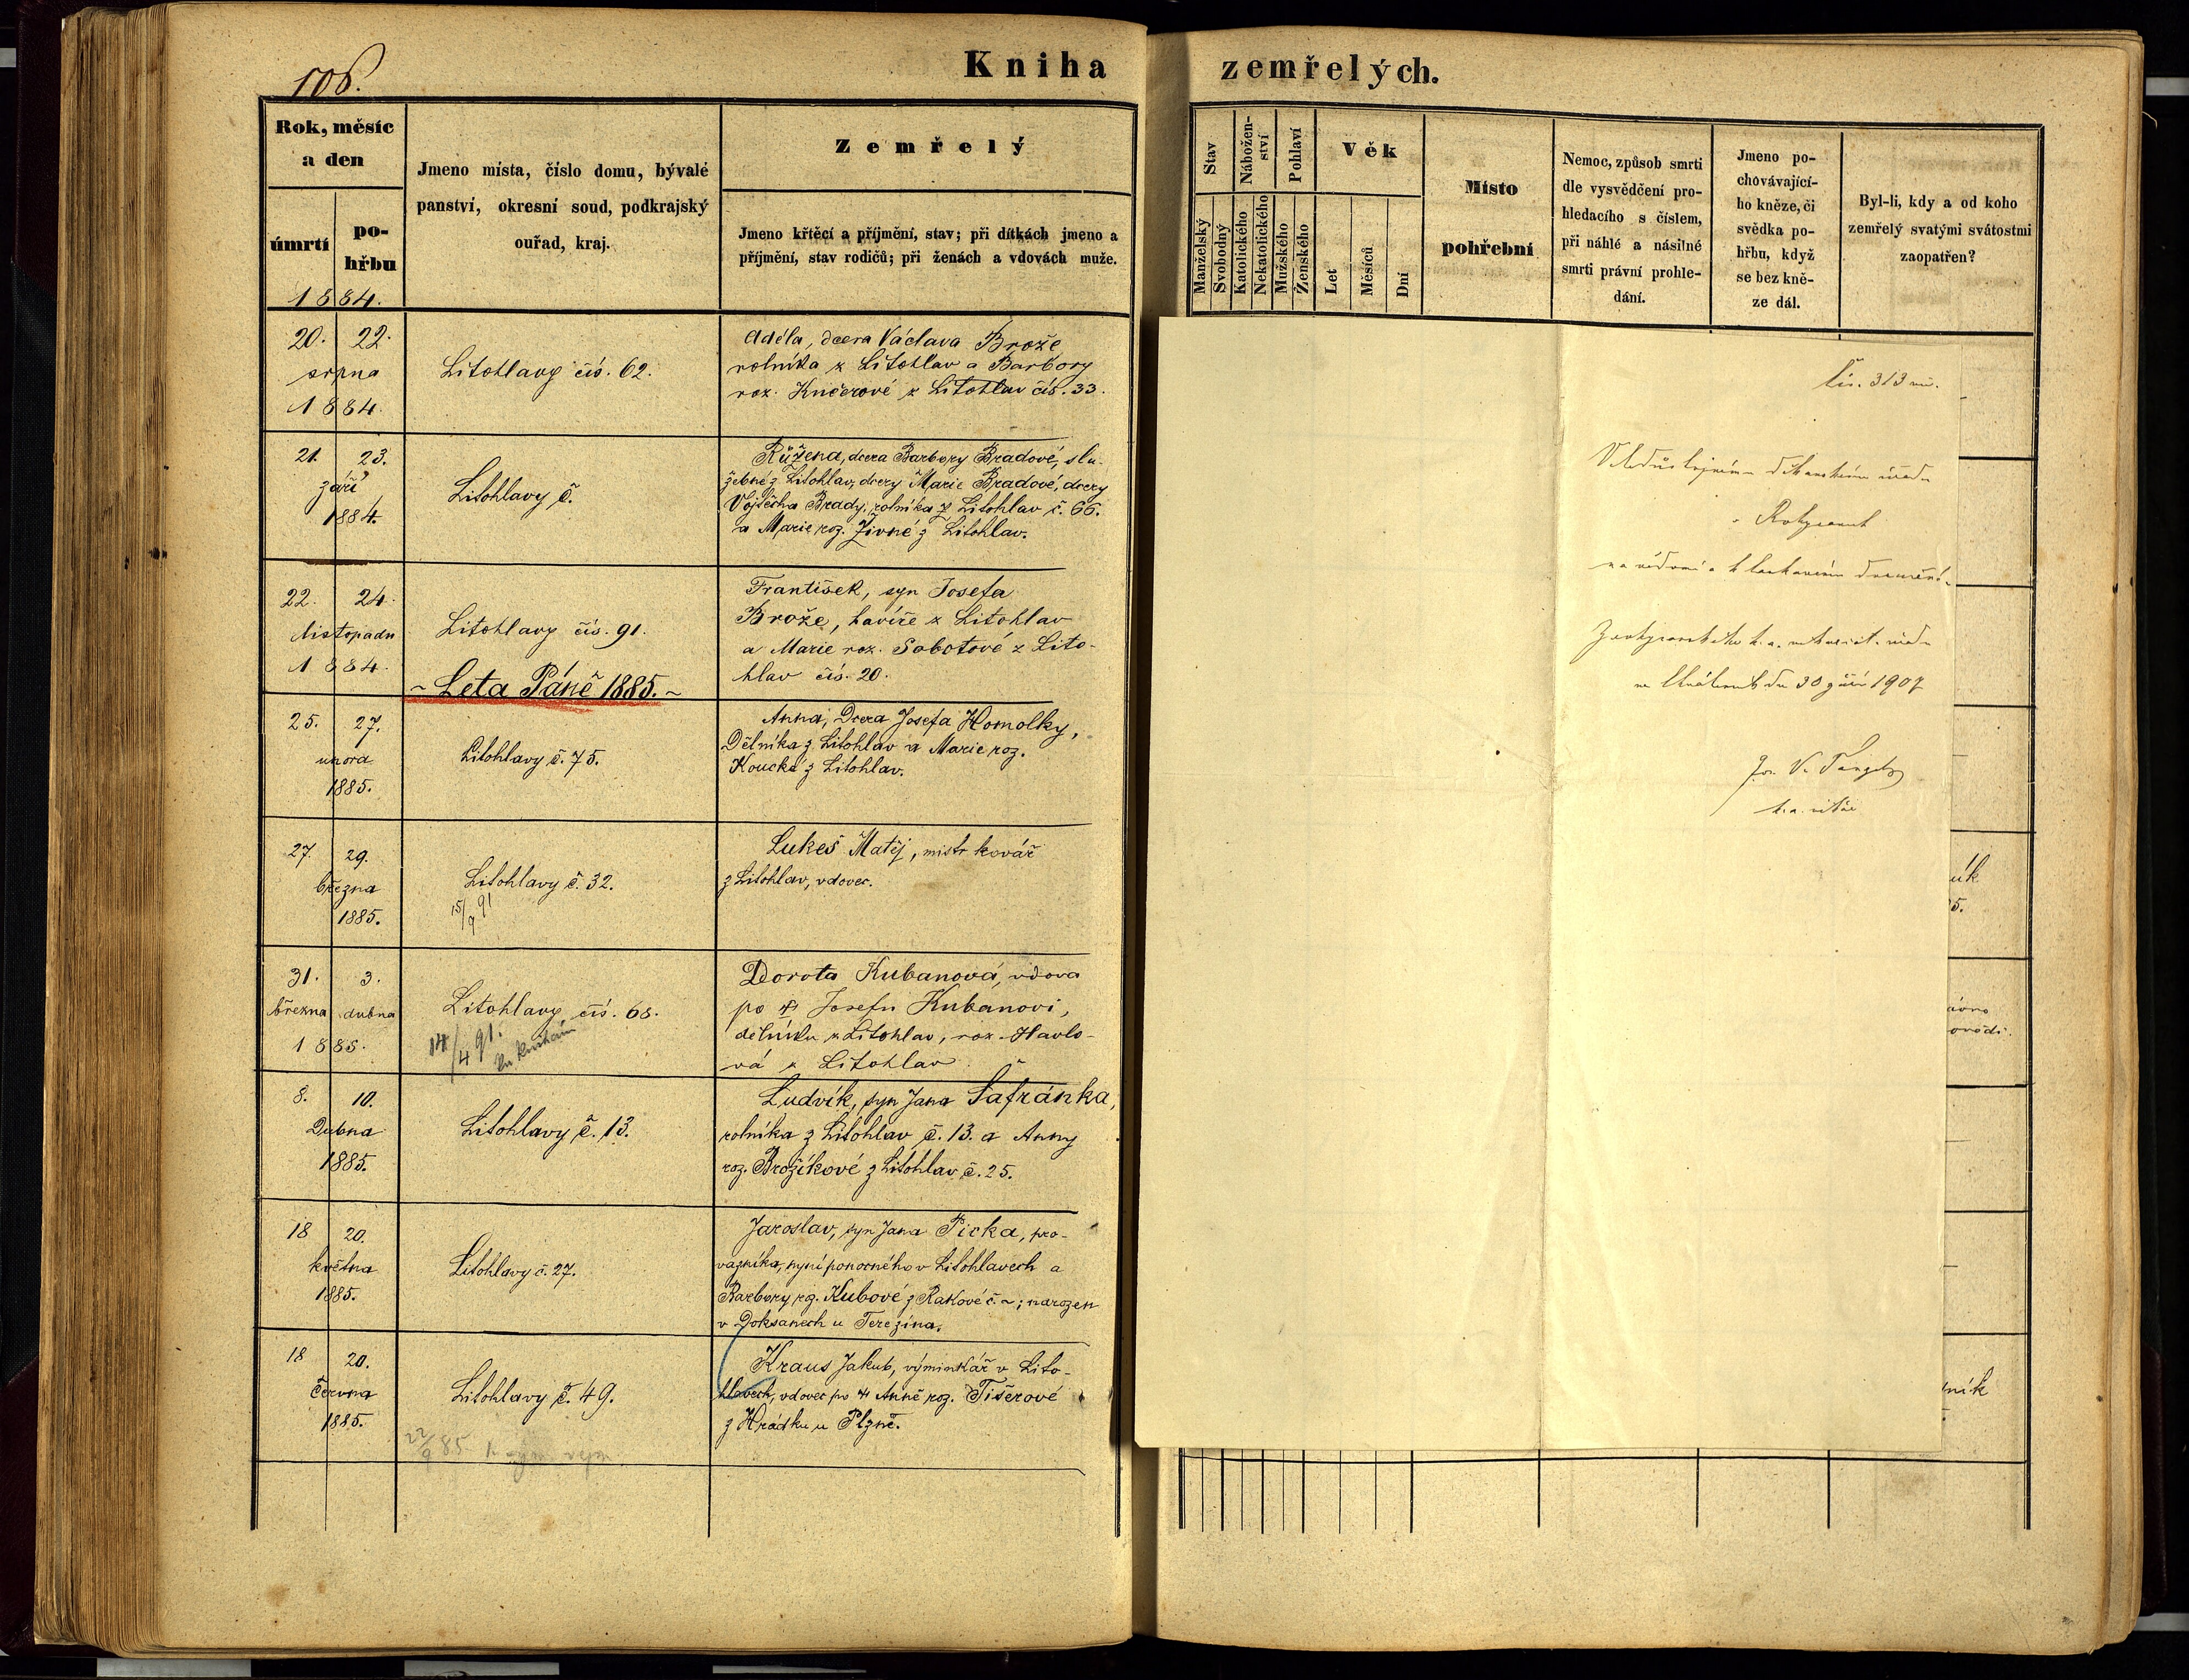 106.
Kniha
zemřelých.
Rok, měsíc
a den
úmrtí
po-
hřbu
1884.
Jmeno místa, číslo domu, bývalé
panství, okresní soud, podkrajský
ouřad, kraj.
Zemřelý
Jmeno křtěcí a příjmění, stav; při dítkách jmeno a
příjmění, stav rodičů; při ženách a vdovách muže.
20. 22.
srpna
1884.
Litohlavy čís. 62.
Adéla, dcera Václava Brože
rolníka z Litohlav a Barbory
roz. Kučerové z Litohlav čís. 33.
21. 23.
září
1884.
Litohlavy č.
Růžena, dcera Barbory Bradové, slu-
žebné z Litohlav, dcery Marie Bradové, dcery
Vojtěcha Brady, rolníka z Litohlav č. 66.
a Marie roz. Živné z Litohlav.
22. 24.
listopadu
1884.
Litohlavy čís. 91.
František, syn Josefa
Brože, havíře z Litohlav
a Marie roz. Sobotové z Lito-
hlav čís. 20.
~ Leta Páně 1885. ~
25. 27.
února
1885.
Litohlavy č. 75.
Anna, Dcera Josefa Homolky,
Dělníka z Litohlav a Marie roz.
Koucké z Litohlav.
27. 29.
března
1885.
Litohlavy č. 32.
15/9 91
Lukeš Matěj, mistr kovář
z Litohlav, vdovec.
31. 3.
března dubna
1885.
Litohlavy čís. 68.
14/4 91.
Dorota Kubanová, vdova
po † Josefu Kubanovi,
dělníku z Litohlav, roz. Havlo-
vá z Litohlav.
8. 10.
Dubna
1885.
Litohlavy č. 13.
Ludvík, syn Jana Šafránka,
rolníka z Litohlav č. 13. a Anny
roz. Brožíkové z Litohlav č. 25.
18 20.
května
1885.
Litohlavy č. 27.
Jaroslav, syn Jana Picka, pro-
vazníka, nyní ponocného v Litohlavech a
Barbory rz. Kubové z Rakové č. ~; narozen
v Doksanech u Terezína.
18 20.
Června
1885.
Litohlavy č. 49.
22/9 85
Kraus Jakub, výminkář v Lito-
hlavech, vdovec po † Anně roz. Tišerové
z Hrádku u Plzně.
Stav
Nábožen-
ství
Pohlaví
Věk
Manželský
Svobodný
Katolického
Nekatolického
Mužského
Ženského
Let
Měsíců
Dní
Místo
pohřební
Nemoc, způsob smrti
dle vysvědčení pro-
hledacího s číslem,
při náhlé a násilné
smrti právní prohle-
dání.
Jmeno po-
chovávající-
ho kněze, či
svědka po-
hřbu, když
se bez kně-
ze dál.
Byl-li, kdy a od koho
zemřelý svatými svátostmi
zaopatřen?
Čís. 313
Veledůstojnému děkanskému úřadu
v Rokycanech
dne 30 září 1907
V.